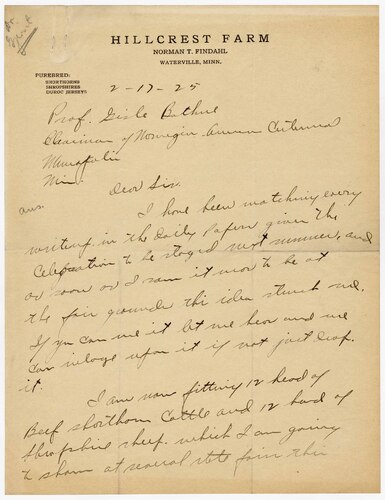 Dr.
HILLCREST FARM
NORMAN T. FINDAHL
WATERVILLE, MINN.
PUREBRED:
SHORTHORNS
SHROPSHIRES
DUROC JERSEYS
2-17-25
Prof. Gisle Bothne
Chairman of Norwegian American Centennial
Minneapolis
Minn.
Dear Sir.
ans.
I have been watching every
writing in the Daily Papers given the
Celebration to be staged next summer, and
as soon as I saw it was to be at
the fair grounds this idea struck me.
If you can use it let me hear and we
can enlarge upon it if not just drop
it.
I am now fitting 12 head of
Beef shorthorn Cattle and 12 head of
Shropshire sheep. which I am going
to show at several state fairs this